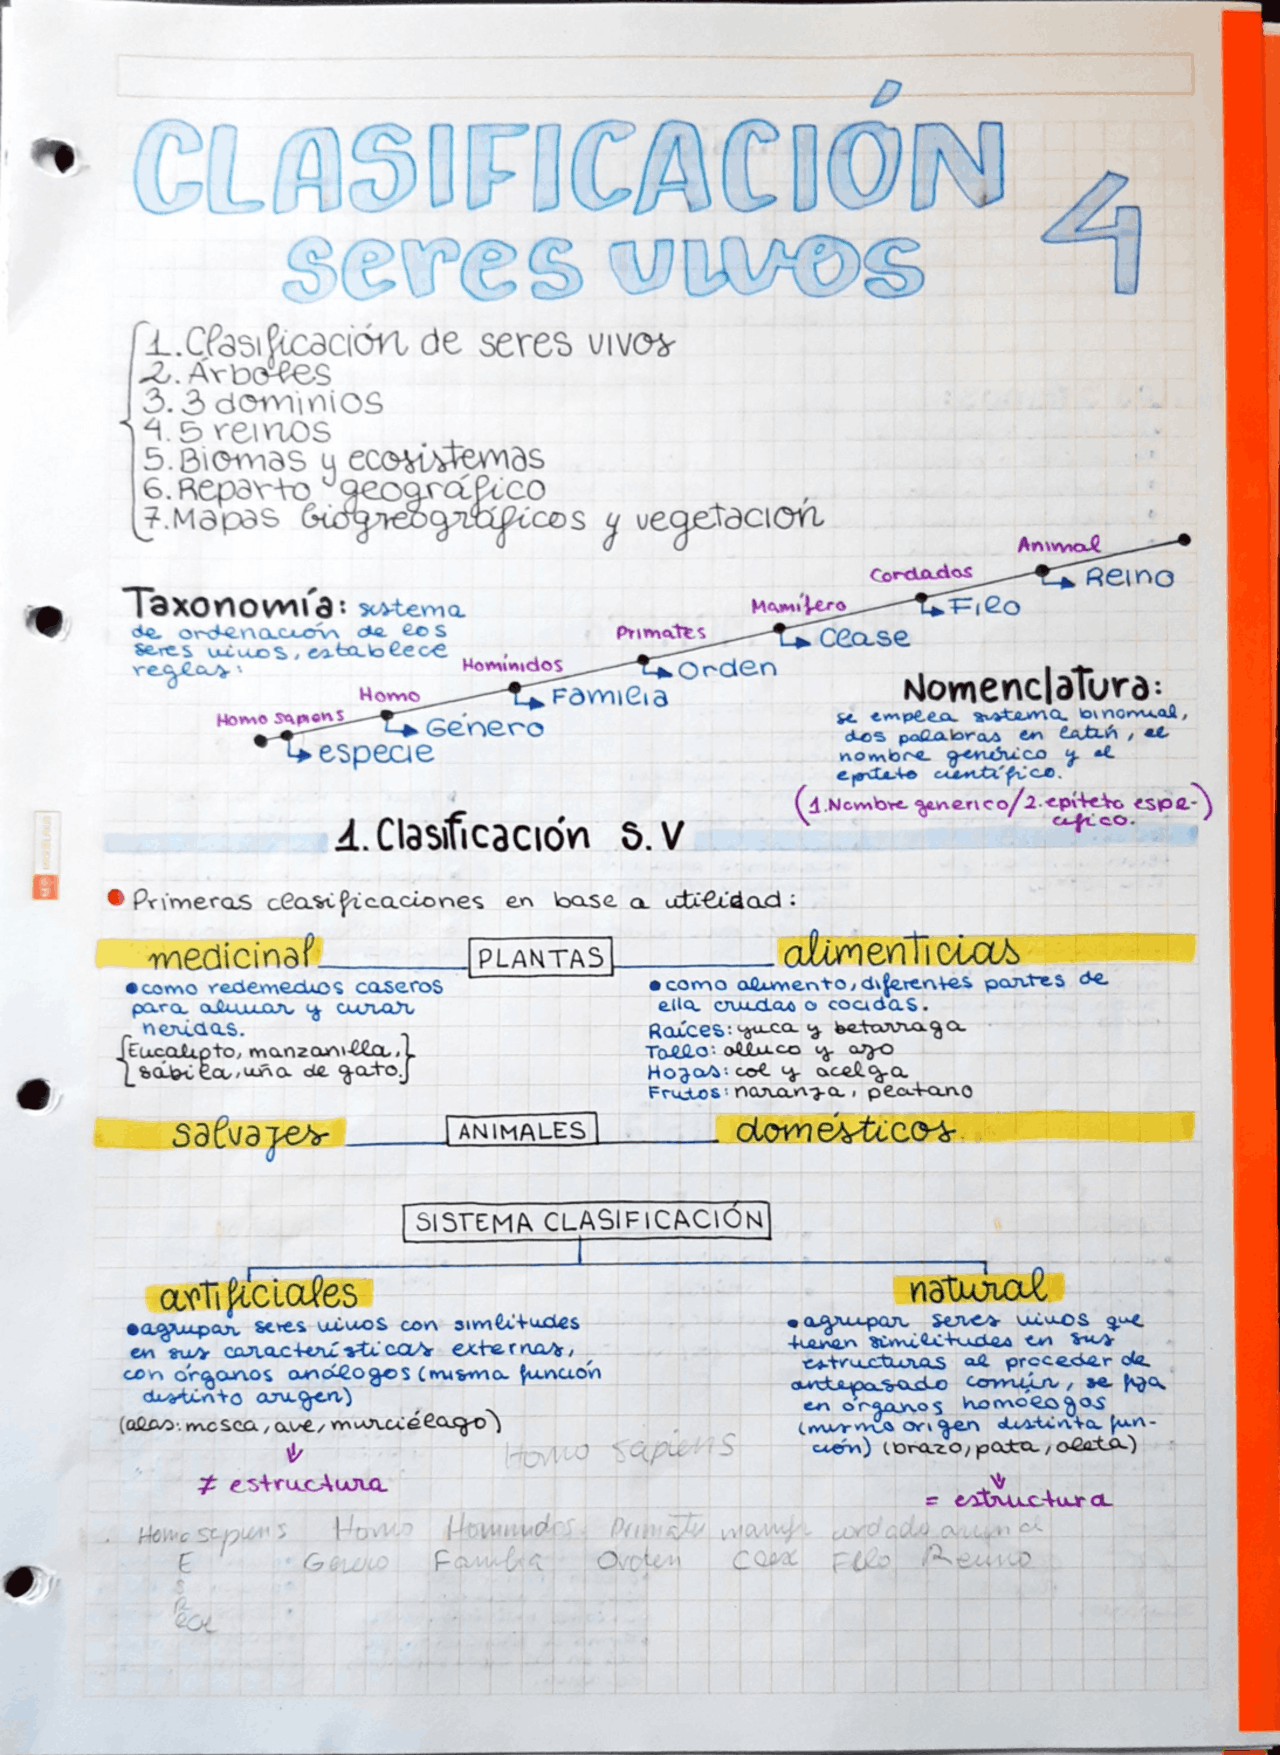 CLASIFICACIÓN
seres vivos
4
1. Clasificación de seres vivos
2. Árboles
3. 3 dominios
4. 5 reinos
5. Biomas y ecosistemas
6. Reparto geográfico
7. Mapas biogreográficos y vegetación
Taxonomía: sistema
de ordenación de los
seres vivos, establece
reglas:
Homo sapiens
especie
Homo
Género
Homínidos
Familia
Primates
Orden
Mamífero
Clase
Cordados
Filo
Animal
Reino
Nomenclatura:
se emplea sistema binomial,
dos palabras en latín, el
nombre genérico y el
epíteto científico.
(1. Nombre generico/2. epíteto espe-)
cífico.
1. Clasificación S.V
Primeras clasificaciones en base a utilidad:
medicinal PLANTAS alimenticias
• como redemedios caseros
para aliviar y curar
heridas.
Eucalipto, manzanilla,
sábila, uña de gato.
• como alimento, diferentes partes de
ella crudas o cocidas.
Raíces: yuca y betarraga
Tallo: olluco y ajo
Hojas: col y acelga
Frutos: naranja, platano
salvajes ANIMALES domésticos.
SISTEMA CLASIFICACIÓN
artificiales
• agrupar seres vivos con similitudes
en sus características externas,
con órganos análogos (misma función
distinto origen)
(alas: mosca, ave, murciélago)
≠ estructura
natural
• agrupar seres vivos que
tienen similitudes en sus
estructuras al proceder de
antepasado común, se fija
en órganos homólogos
(mismo origen distinta fun-
ción) (brazo, pata, aleta)
= estructura
Homo sapiens
Homo sapiens Homo Hominidos Primates mamif cordado animal
E Genero Familia Orden Clase Filo Reino